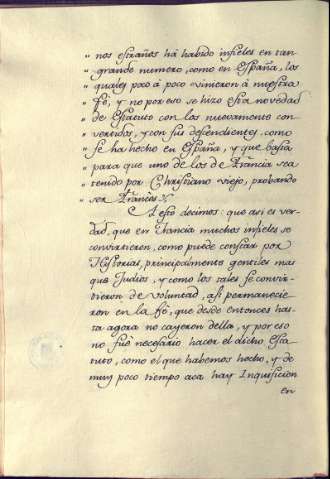 " nos estraños há habido infieles en tan
" grande numero, como en España, los
" quales poco à poco vinieron à nuestra
" fé, y no por eso se hizo esta novedad
" de Estatuto con los nuevamente con
" vertidos, y con sus descendientes como
" se ha hecho en España, y que basta
" para que uno de los de Francia sea
" tenido por Christiano viejo, probando
" ser Francès
A esto decimos: que asi es ver-
dad, que en Francia muchos infieles se
convirtieron, como puede constar por
Historias, principalmente gentiles mas
que Judios, y como los tales se convir-
tieron de voluntad, asi permanecie-
ron en la fé, que desde entonces has-
ta agora no cayeron della, y por eso
no fuè necesario hacer el dicho Esta-
tuto, como el que habemos hecho, y de
muy poco tiempo aca hay Inquisicion
en